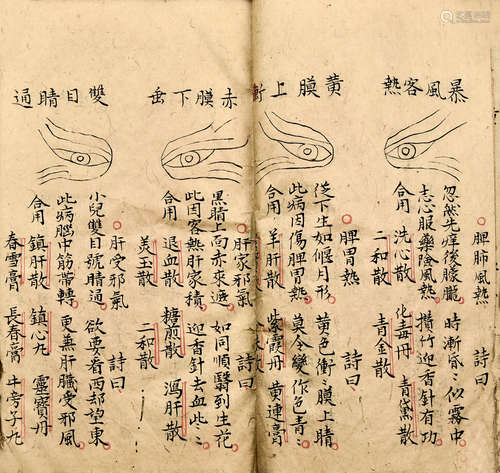 暴風客熱
脾肺風熱
忽然先痒後朦朧 時漸昏〻似霧中
志心服藥除風熱 攢竹迎香針有功
合用 洗心散 化毒丹 青黛散
二和散 青金散
黃膜上衝
脾胃熱 詩曰
從下生如偃月形 黃色衝〻膜上睛
此病因傷脾胃熱 莫令變作色青〻
合用 羊肝散 紫霞丹 黃連膏
赤膜下垂
肝家邪氣 詩曰
黑睛上面赤來遮 如同順翳到生花
此因客熱肝家積 迎香針去血些〻
合用 退血散 糖煎散 瀉肝散
美玉散 二和散
雙目睛通
肝受邪氣 詩曰
小兒雙目號睛通 欲要看西却望東
此病腦中筋帶轉 更無肝臟受邪風
合用 鎮肝散 鎮心丸 靈寶丹
春雪膏 長春膏 牛旁子丸